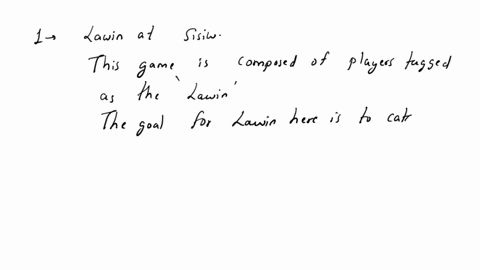 1→ Lawin at Sisiw.
This game is composed of players tagged
as the 'Lawin'
The goal for Lawin here is to catc